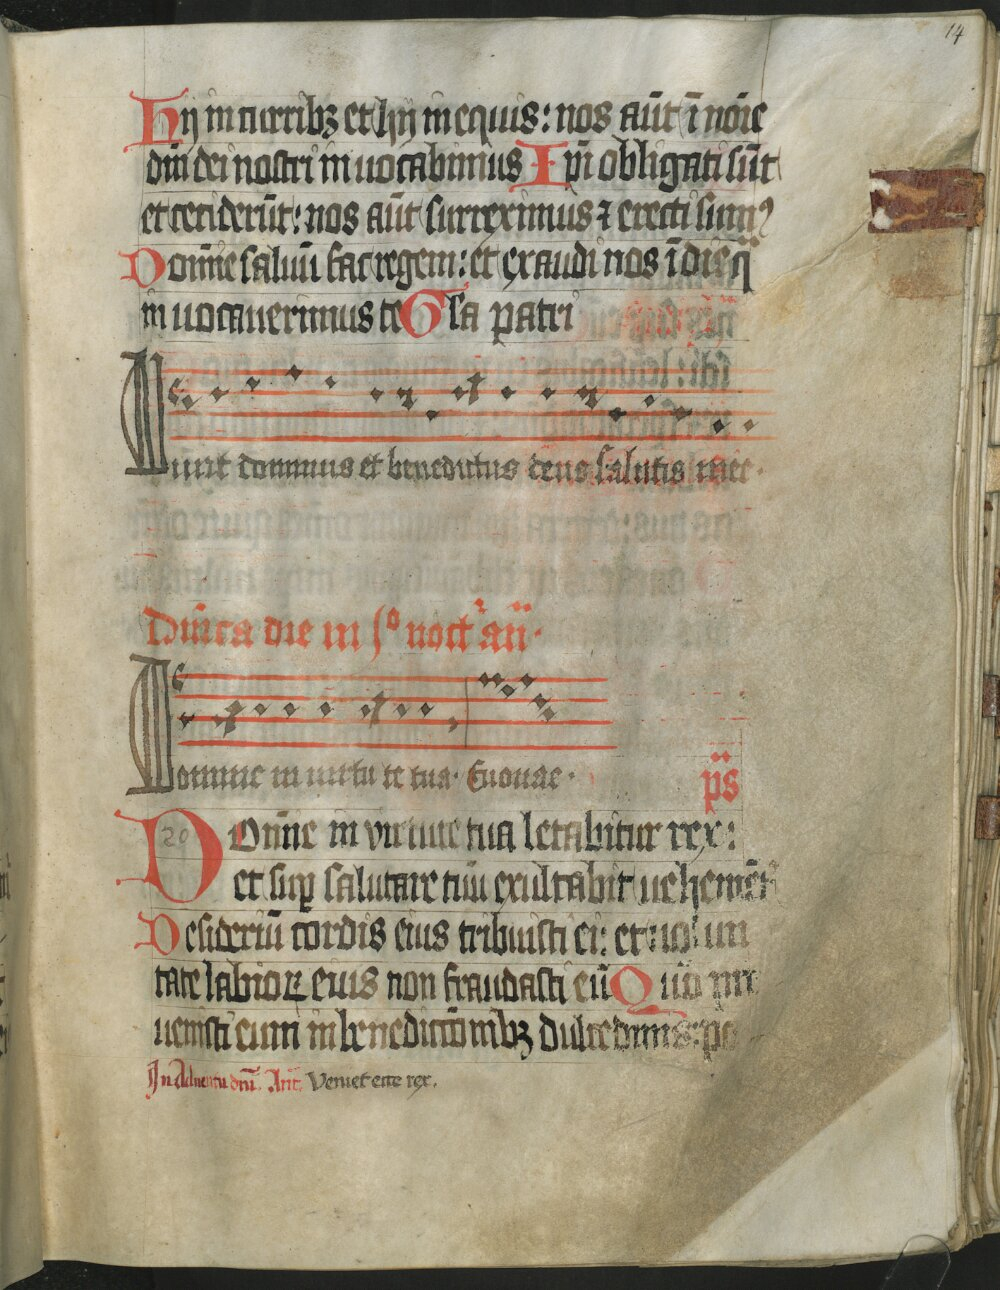 14
Hij in curribꝫ et hij in equis: nos aūt ī noīe
dn̄i dei nostri in uocabimus Ip̄i obligati sūt
et ceciderūt: nos aūt surreximus ⁊ erecti sumꝰ
Domīne saluū fac regem: et exaudi nos ī die q̄
in uocauerimus te Gl̄a patri
Uiuit dominus et benedictus deus salutis mee.
Dn̄ica die in ſº noct̄ an̄.
Domine in uirtu te tua. Euouae.
ps
20
Domīne in virtute tua letabitur rex:
et sup̄ salutare tuū exultabit uehemēt
Desideriū cordis eius tribuisti ei: et uolun
tate labioꝝ eius non fraudasti eū Quō pre
uenisti eum in benedictōnibꝫ dulcedinis: po
In Aduentu dn̄i. Ant̄. Veniet ecce rex.